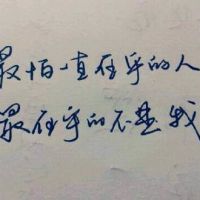 最怕一直在乎的人
最在乎的不是我